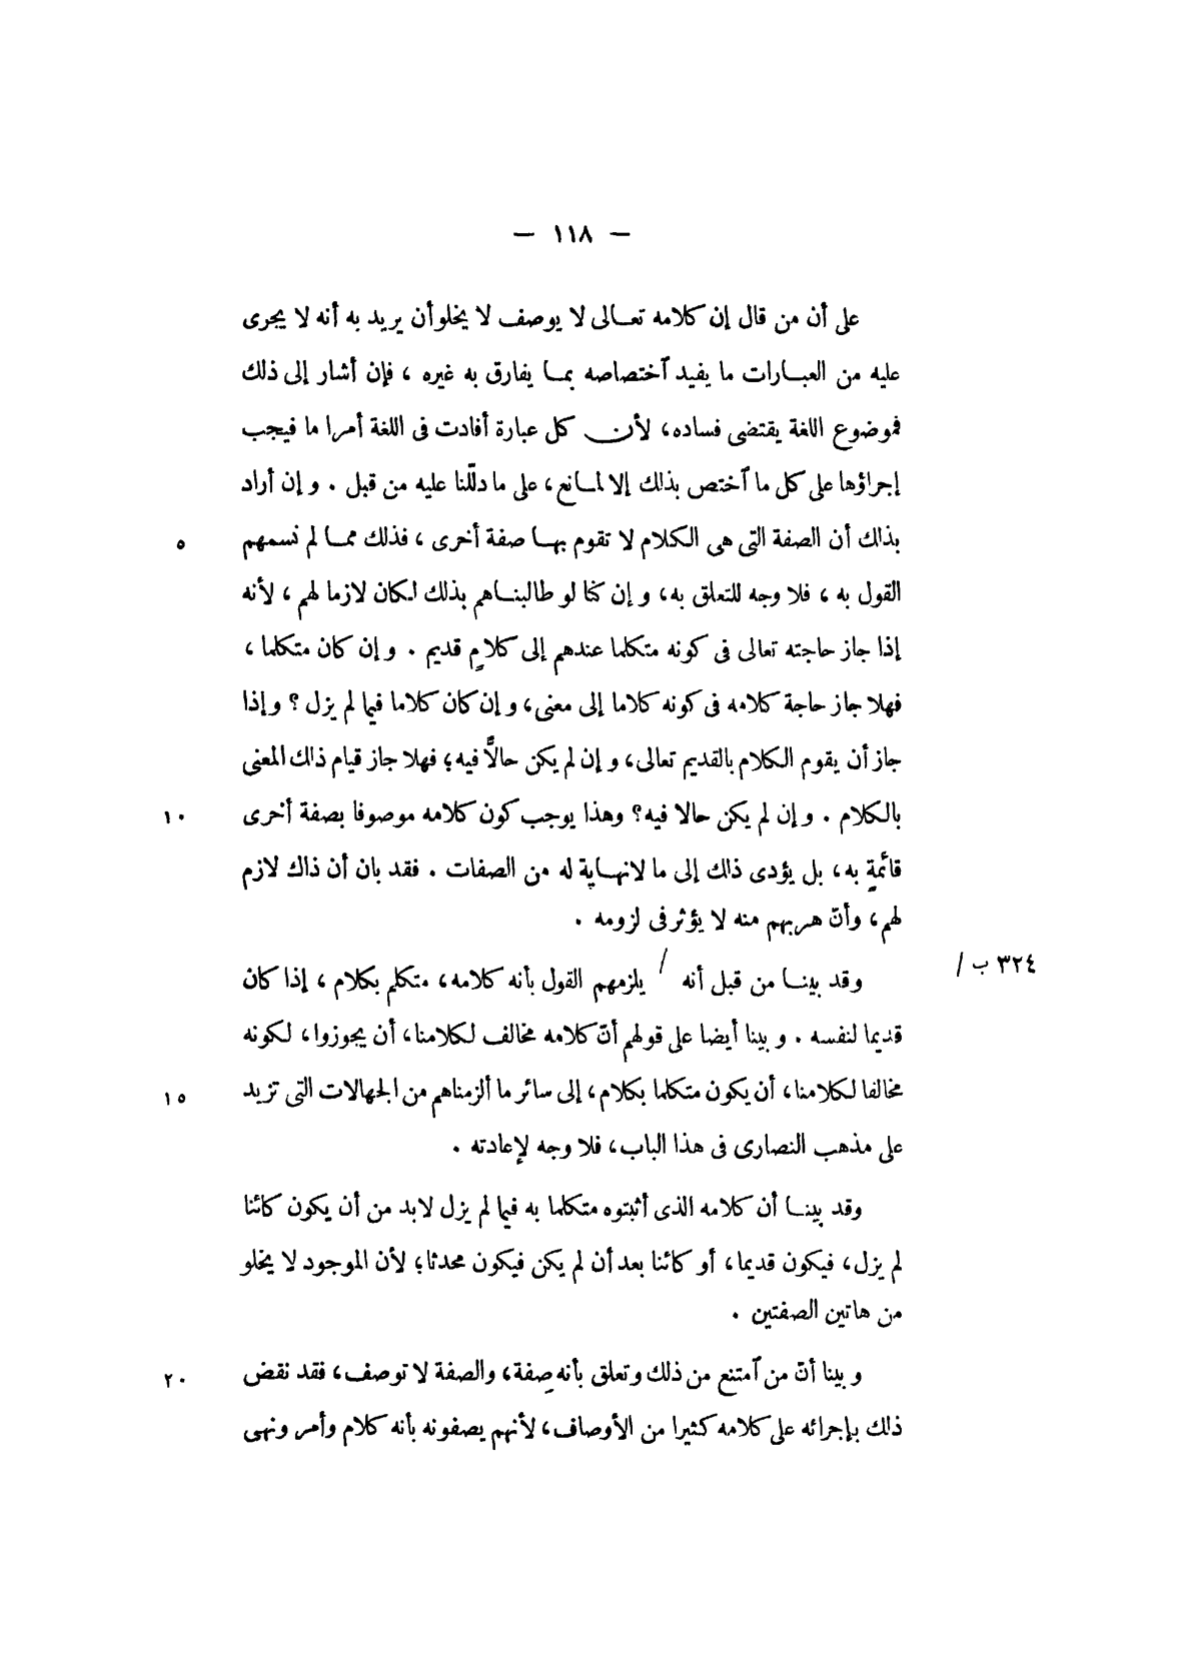 — ١١٨ —
على أن من قال إن كلامه تعالى لا يوصف لا يخلو أن يريد به أنه لا يجرى
عليه من العبارات ما يفيد آختصاصه بما يفارق به غيره ، فإن أشار إلى ذلك
فموضوع اللغة يقتضى فساده، لأن كل عبارة أفادت فى اللغة أمرا ما فيجب
إجراؤها على كل ما آختص بذلك إلا لمانع، على ما دلّلنا عليه من قبل . وإن أراد
بذلك أن الصفة التى هى الكلام لا تقوم بها صفة أخرى ، فذلك مما لم نسمهم ٥
القول به ، فلا وجه للتعلق به، وإن كنا لو طالبناهم بذلك لكان لازما لهم ، لأنه
إذا جاز حاجته تعالى فى كونه متكلما عندهم إلى كلامٍ قديم . وإن كان متكلما ،
فهلا جاز حاجة كلامه فى كونه كلاما إلى معنى، وإن كان كلاما فيما لم يزل ؟ وإذا
جاز أن يقوم الكلام بالقديم تعالى، وإن لم يكن حالًّا فيه؛ فهلا جاز قيام ذلك المعنى
بالكلام . وإن لم يكن حالا فيه؟ وهذا يوجب كون كلامه موصوفا بصفة أخرى ١٠
قائمةٍ به، بل يؤدى ذلك إلى ما لانهاية له من الصفات . فقد بان أن ذلك لازم
لهم، وأنّ هربهم منه لا يؤثر فى لزومه .
٣٢٤ ب / وقد بينا من قبل أنه / يلزمهم القول بأنه كلامه، متكلم بكلام ، إذا كان
قديما لنفسه . وبينا أيضا على قولهم أنّ كلامه مخالف لكلامنا، أن يجوزوا، لكونه
مخالفا لكلامنا، أن يكون متكلما بكلام، إلى سائر ما ألزمناهم من الجهالات التى تزيد ١٥
على مذهب النصارى فى هذا الباب، فلا وجه لإعادته .
وقد بينا أن كلامه الذى أثبتوه متكلما به فيما لم يزل لابد من أن يكون كائنا
لم يزل، فيكون قديما، أو كائنا بعد أن لم يكن فيكون محدثا؛ لأن الموجود لا يخلو
من هاتين الصفتين .
وبينا أنّ من آمتنع من ذلك وتعلق بأنه صِفة، والصفة لا توصف، فقد نقض ٢٠
ذلك بإجرائه على كلامه كثيرا من الأوصاف، لأنهم يصفونه بأنه كلام وأمر ونهى